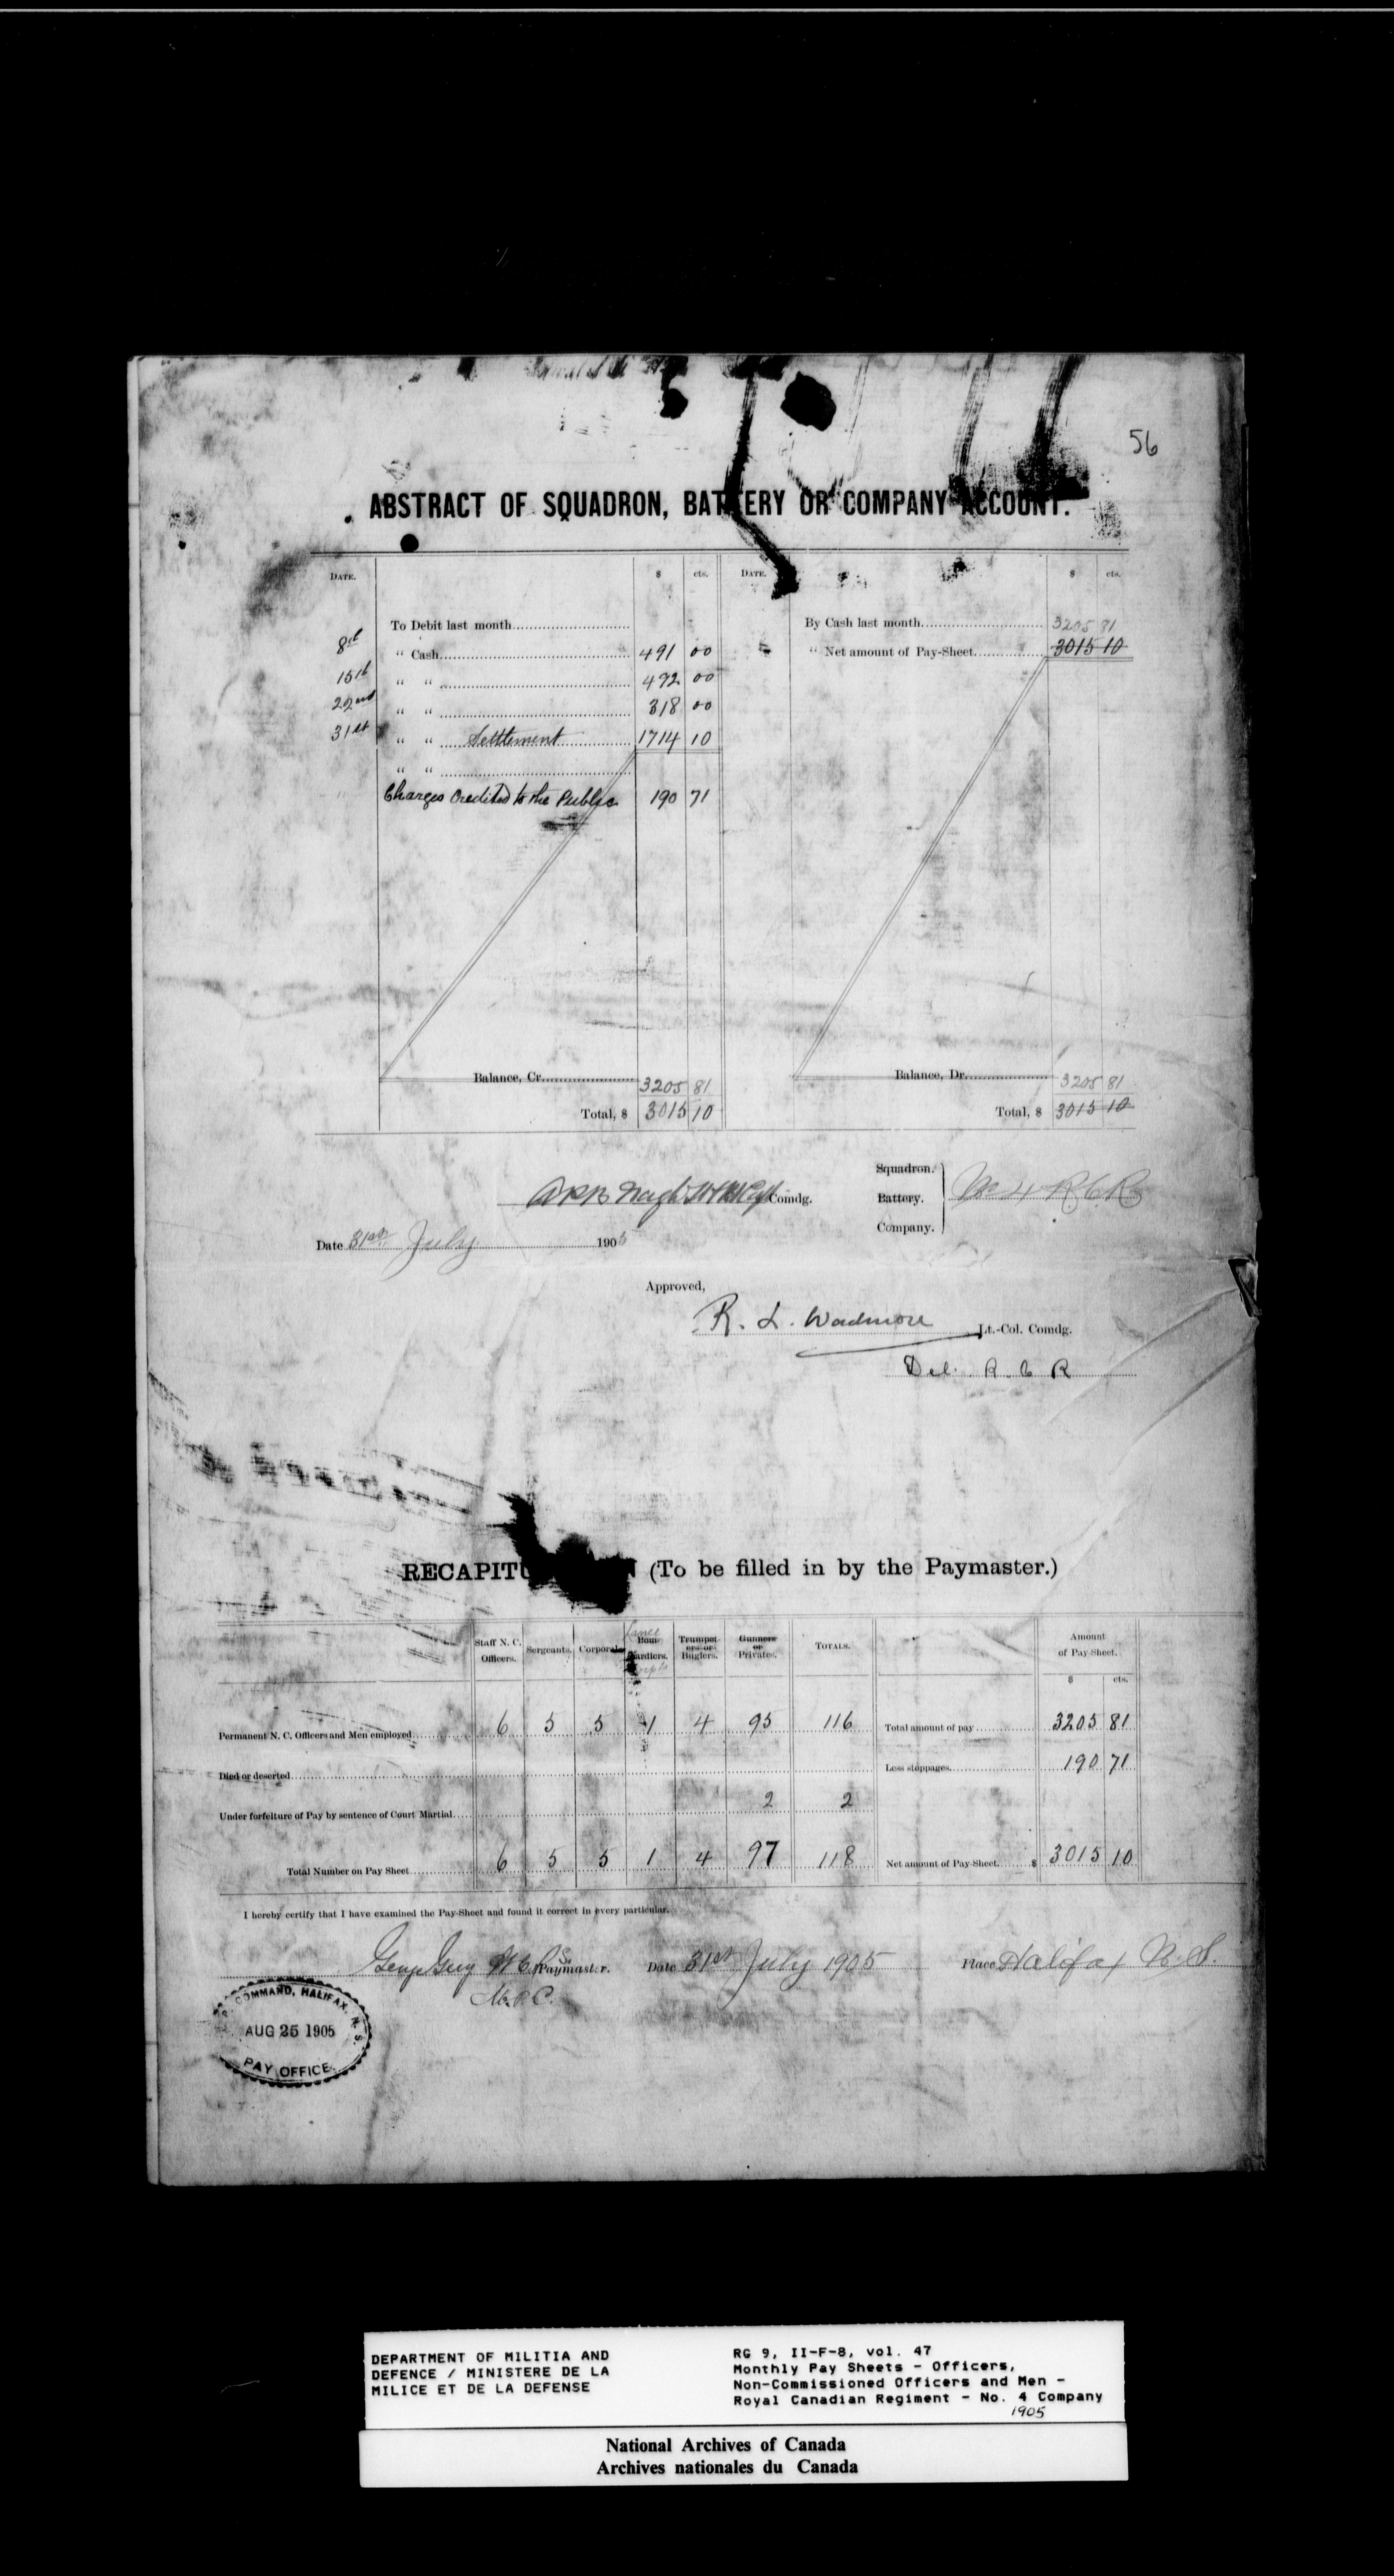 56
ABSTRACT OF SQUADRON, BATTERY OR COMPANY ACCOUNT.
DATE. $ cts. DATE. $ cts.
To Debit last month By Cash last month 3205 81
8th " Cash 491 00 " Net amount of Pay-Sheet 3015 10
15th " " 492 00
22nd " " 318 00
31st " " Settlement 1714 10
" "
Charges Credited to the Public 190 71
Balance, Cr. 3205 81 Balance, Dr. 3205 81
Total, $ 3015 10 Total, $ 3015 10
Comdg.
Squadron.
Battery. No 4 R C R
Company.
Date 31st July 1905
Approved,
R. L. Wadmore Lt.-Col. Comdg.
R C R
(To be filled in by the Paymaster.)
Staff N. C. Officers. Sergeants. Corporals. Lance Bombardiers. Corpls Trumpeters or Buglers. Gunners or Privates. TOTALS. Amount of Pay-Sheet.
$ cts.
Permanent N. C. Officers and Men employed 6 5 5 1 4 95 116 Total amount of pay 3205 81
Died or deserted Less stoppages 190 71
Under forfeiture of Pay by sentence of Court Martial 2 2
Total Number on Pay Sheet 6 5 5 1 4 97 118 Net amount of Pay-Sheet $ 3015 10
I hereby certify that I have examined the Pay-Sheet and found it correct in every particular.
Paymaster. Date 31st July 1905 Place Halifax N.S.
COMMAND, HALIFAX, N. S.
AUG 25 1905
PAY OFFICE
DEPARTMENT OF MILITIA AND
DEFENCE / MINISTERE DE LA
MILICE ET DE LA DEFENSE
RG 9, II-F-8, vol. 47
Monthly Pay Sheets - Officers,
Non-Commissioned Officers and Men -
Royal Canadian Regiment - No. 4 Company
1905
National Archives of Canada
Archives nationales du Canada